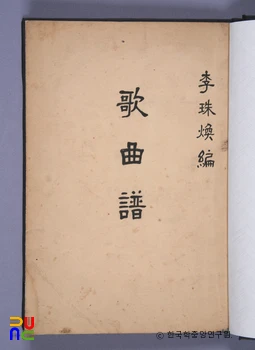 李珠煥編
歌曲譜
©한국학중앙연구원